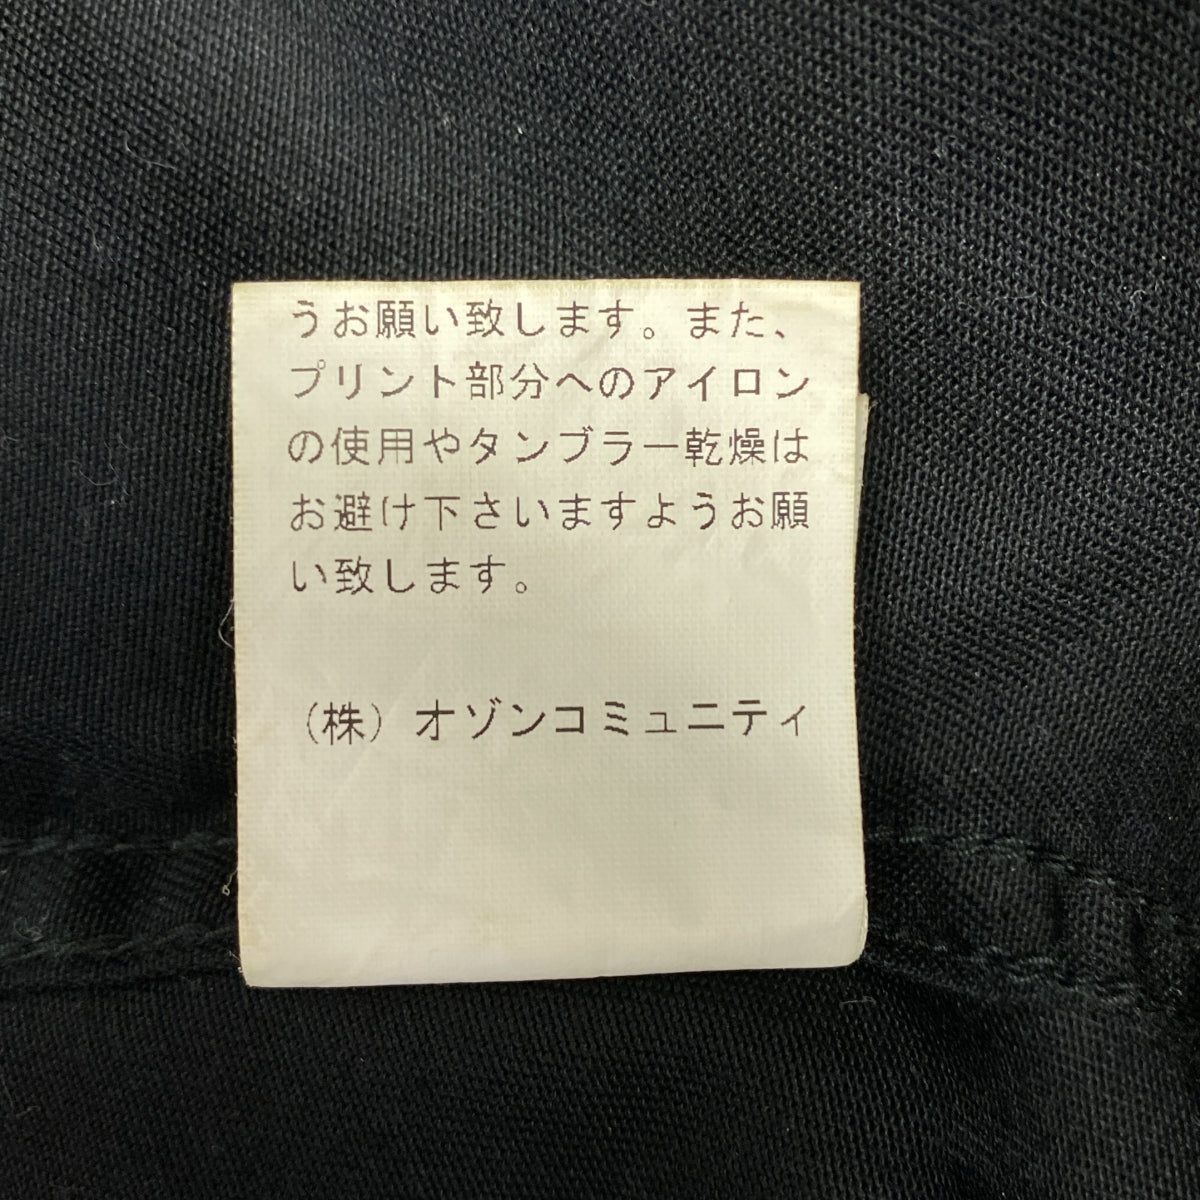 うお願い致します。また、
プリント部分へのアイロン
の使用やタンブラー乾燥は
お避け下さいますようお願
い致します。
（株）オゾンコミュニティ